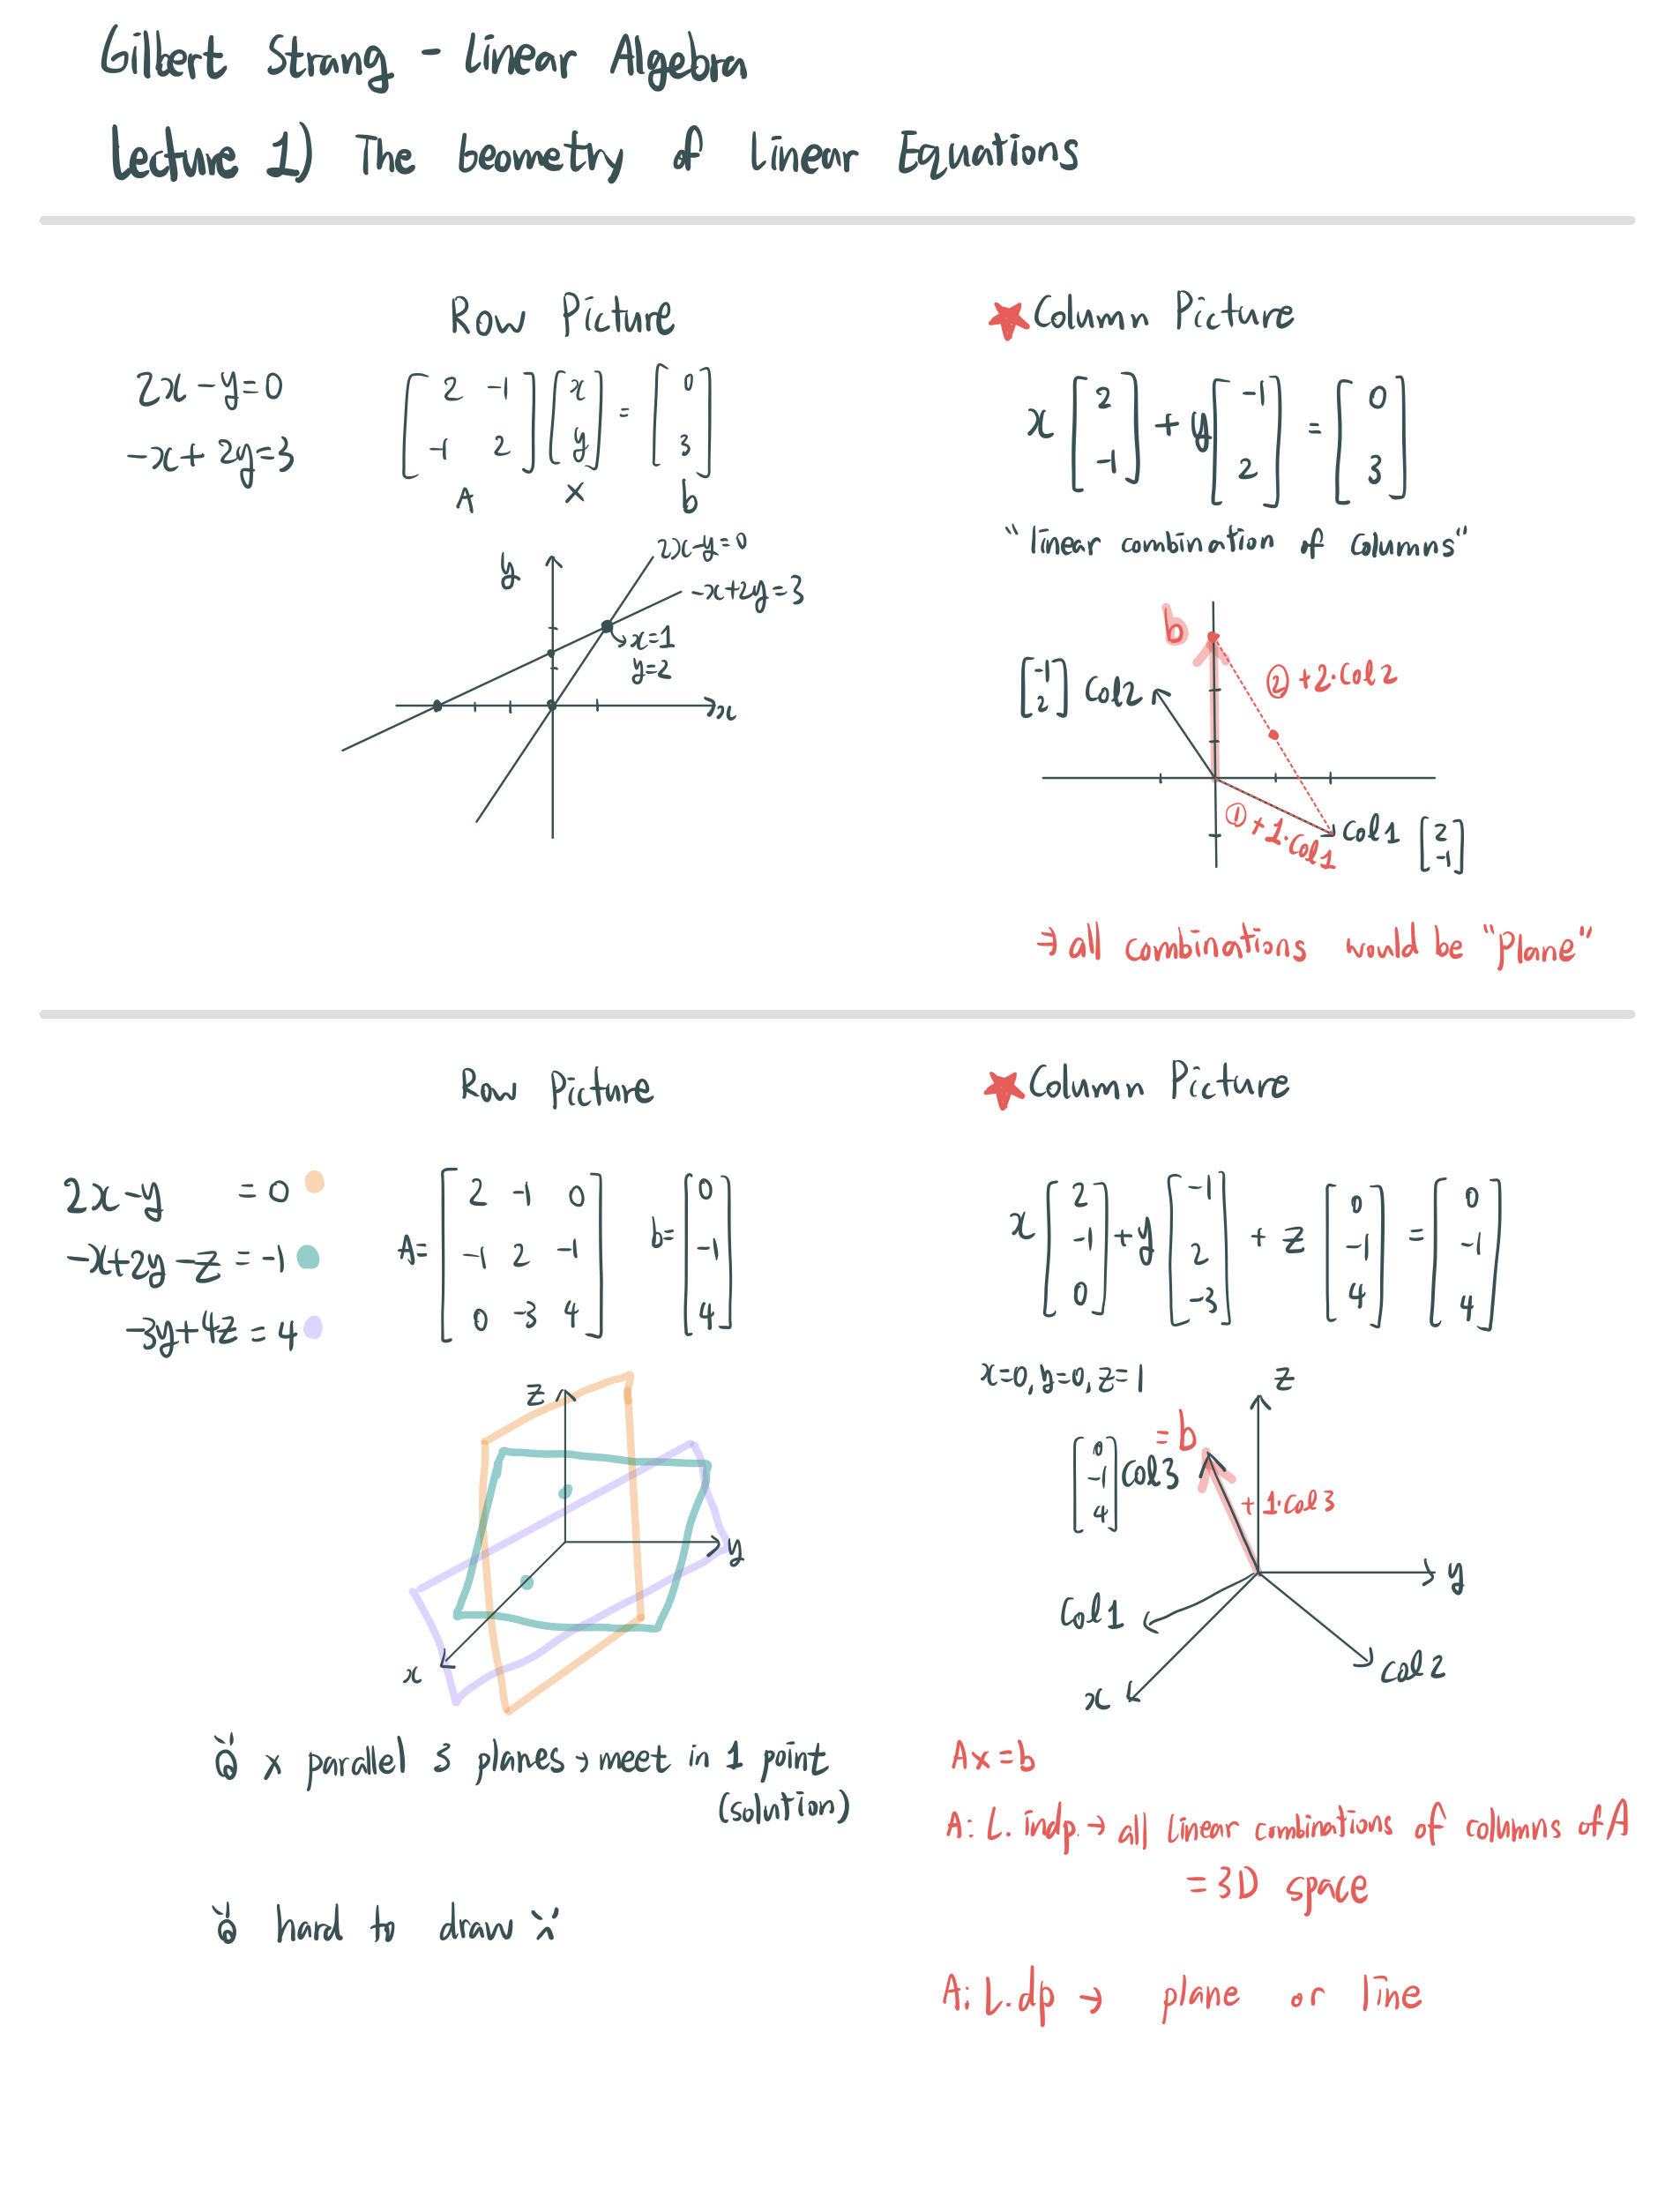 Gilbert Strang - Linear Algebra
Lecture 1) The Geometry of Linear Equations
Row Picture
2x - y = 0
-x + 2y = 3
[2 -1; -1 2] [x; y] = [0; 3]
A x b
y
2x-y=0
-x+2y=3
x=1
y=2
x
★ Column Picture
x [2; -1] + y [-1; 2] = [0; 3]
"linear combination of columns"
b
② +2·Col2
[-1; 2] Col2
① +1·Col1
Col1 [2; -1]
→ all combinations would be "Plane"
Row Picture
2x-y = 0
-x+2y-z = -1
-3y+4z = 4
A= [2 -1 0; -1 2 -1; 0 -3 4] b= [0; -1; 4]
z
y
x
x parallel 3 planes → meet in 1 point
(solution)
hard to draw
★ Column Picture
x [2; -1; 0] + y [-1; 2; -3] + z [0; -1; 4] = [0; -1; 4]
x=0, y=0, z=1
z
= b
[0; -1; 4] Col3
+ 1·Col3
y
Col1
Col2
x
Ax = b
A: L. indp. → all linear combinations of columns of A
= 3D space
A: L. dp → plane or line